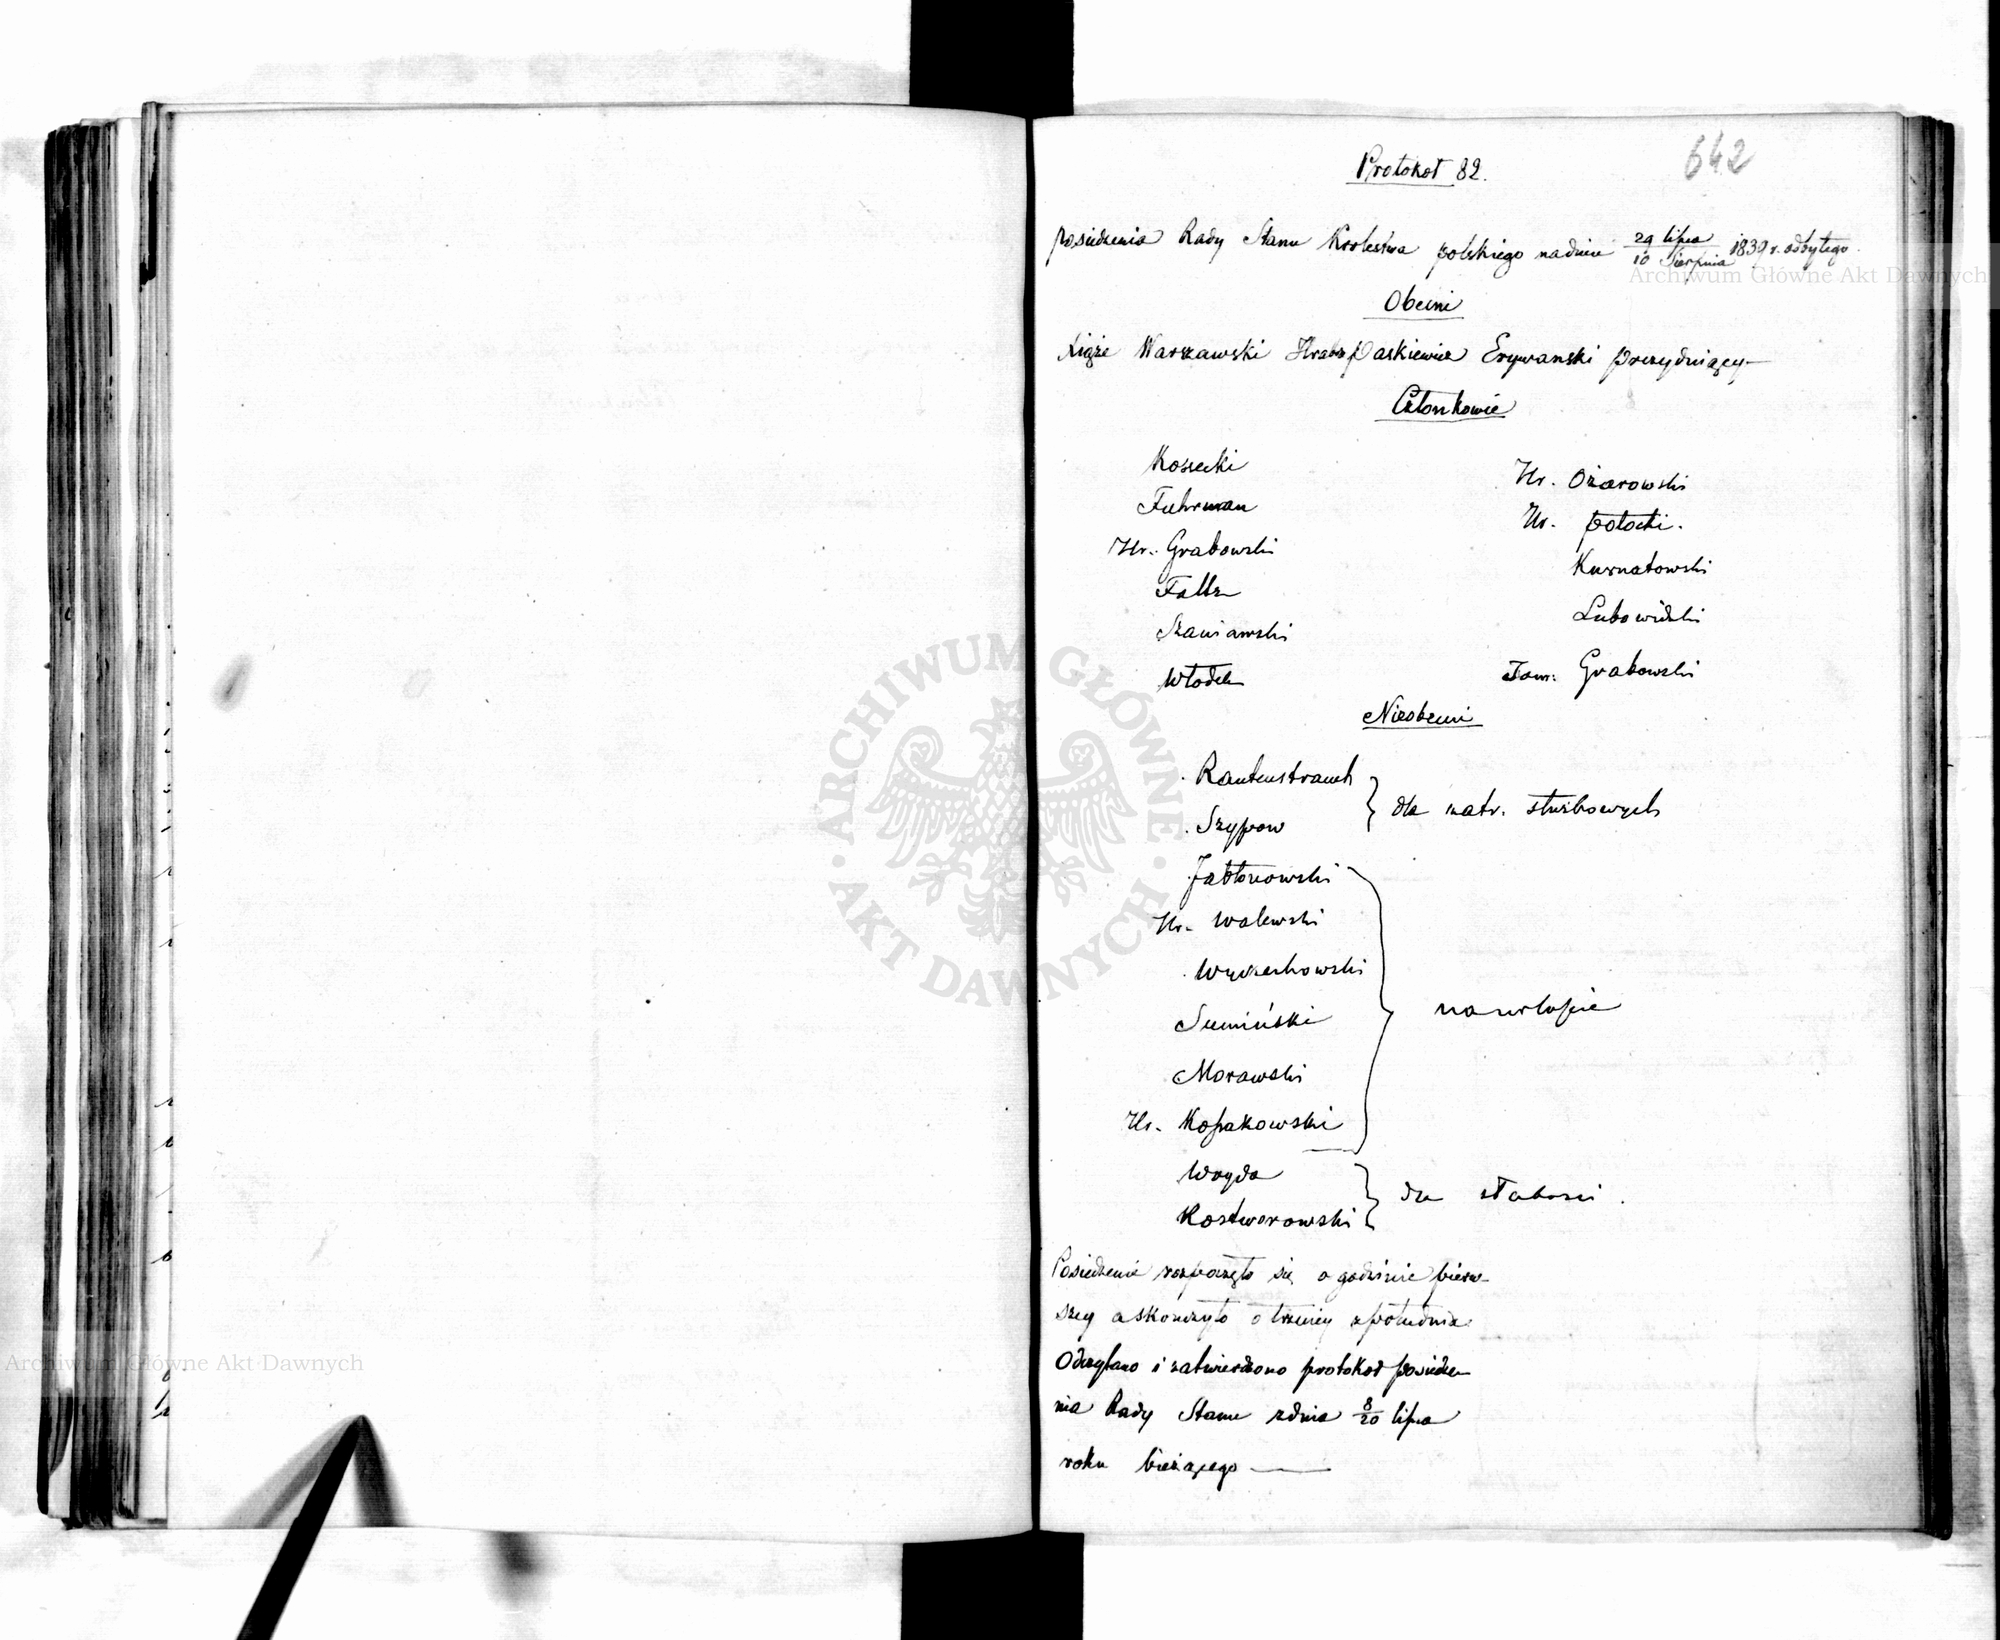 642
Protokoł 82.
posiedzenia Rady Stanu Krolestwa polskiego na dniu 29 lipca / 10 Sierpnia 1839 r. odbytego.
Obecni
Xiąże Warszawski Hrabia Paskiewicz Erywanski prezyduiący
Członkowie
Kossecki
Hr. Ożarowski
Fuhrman
Hr. Potocki.
Hr. Grabowski
Kurnatowski
Faltz
Lubowidzki
Szaniawski
Tom: Grabowski
Włodek
Nieobecni
Rautenstrauch
Szypow
dla zatr. służbowych
Jabłonowski
Hr. Walewski
Wyczechowski
Sumiński
Morawski
Hr. Kossakowski
na urlopie
Woyda
Kostworowski
dla słabości.
Posiedzenie rozpoczęło się o godzinie pierw-
szey a skończyło o trzeciey z południa.
Odczytano i zatwierdzono protokoł posiedze
nia Rady Stanu z dnia 8/20 lipca
roku bieżącego
Archiwum Główne Akt Dawnych
ARCHIWUM GŁÓWNE AKT DAWNYCH
Archiwum Główne Akt Dawnych